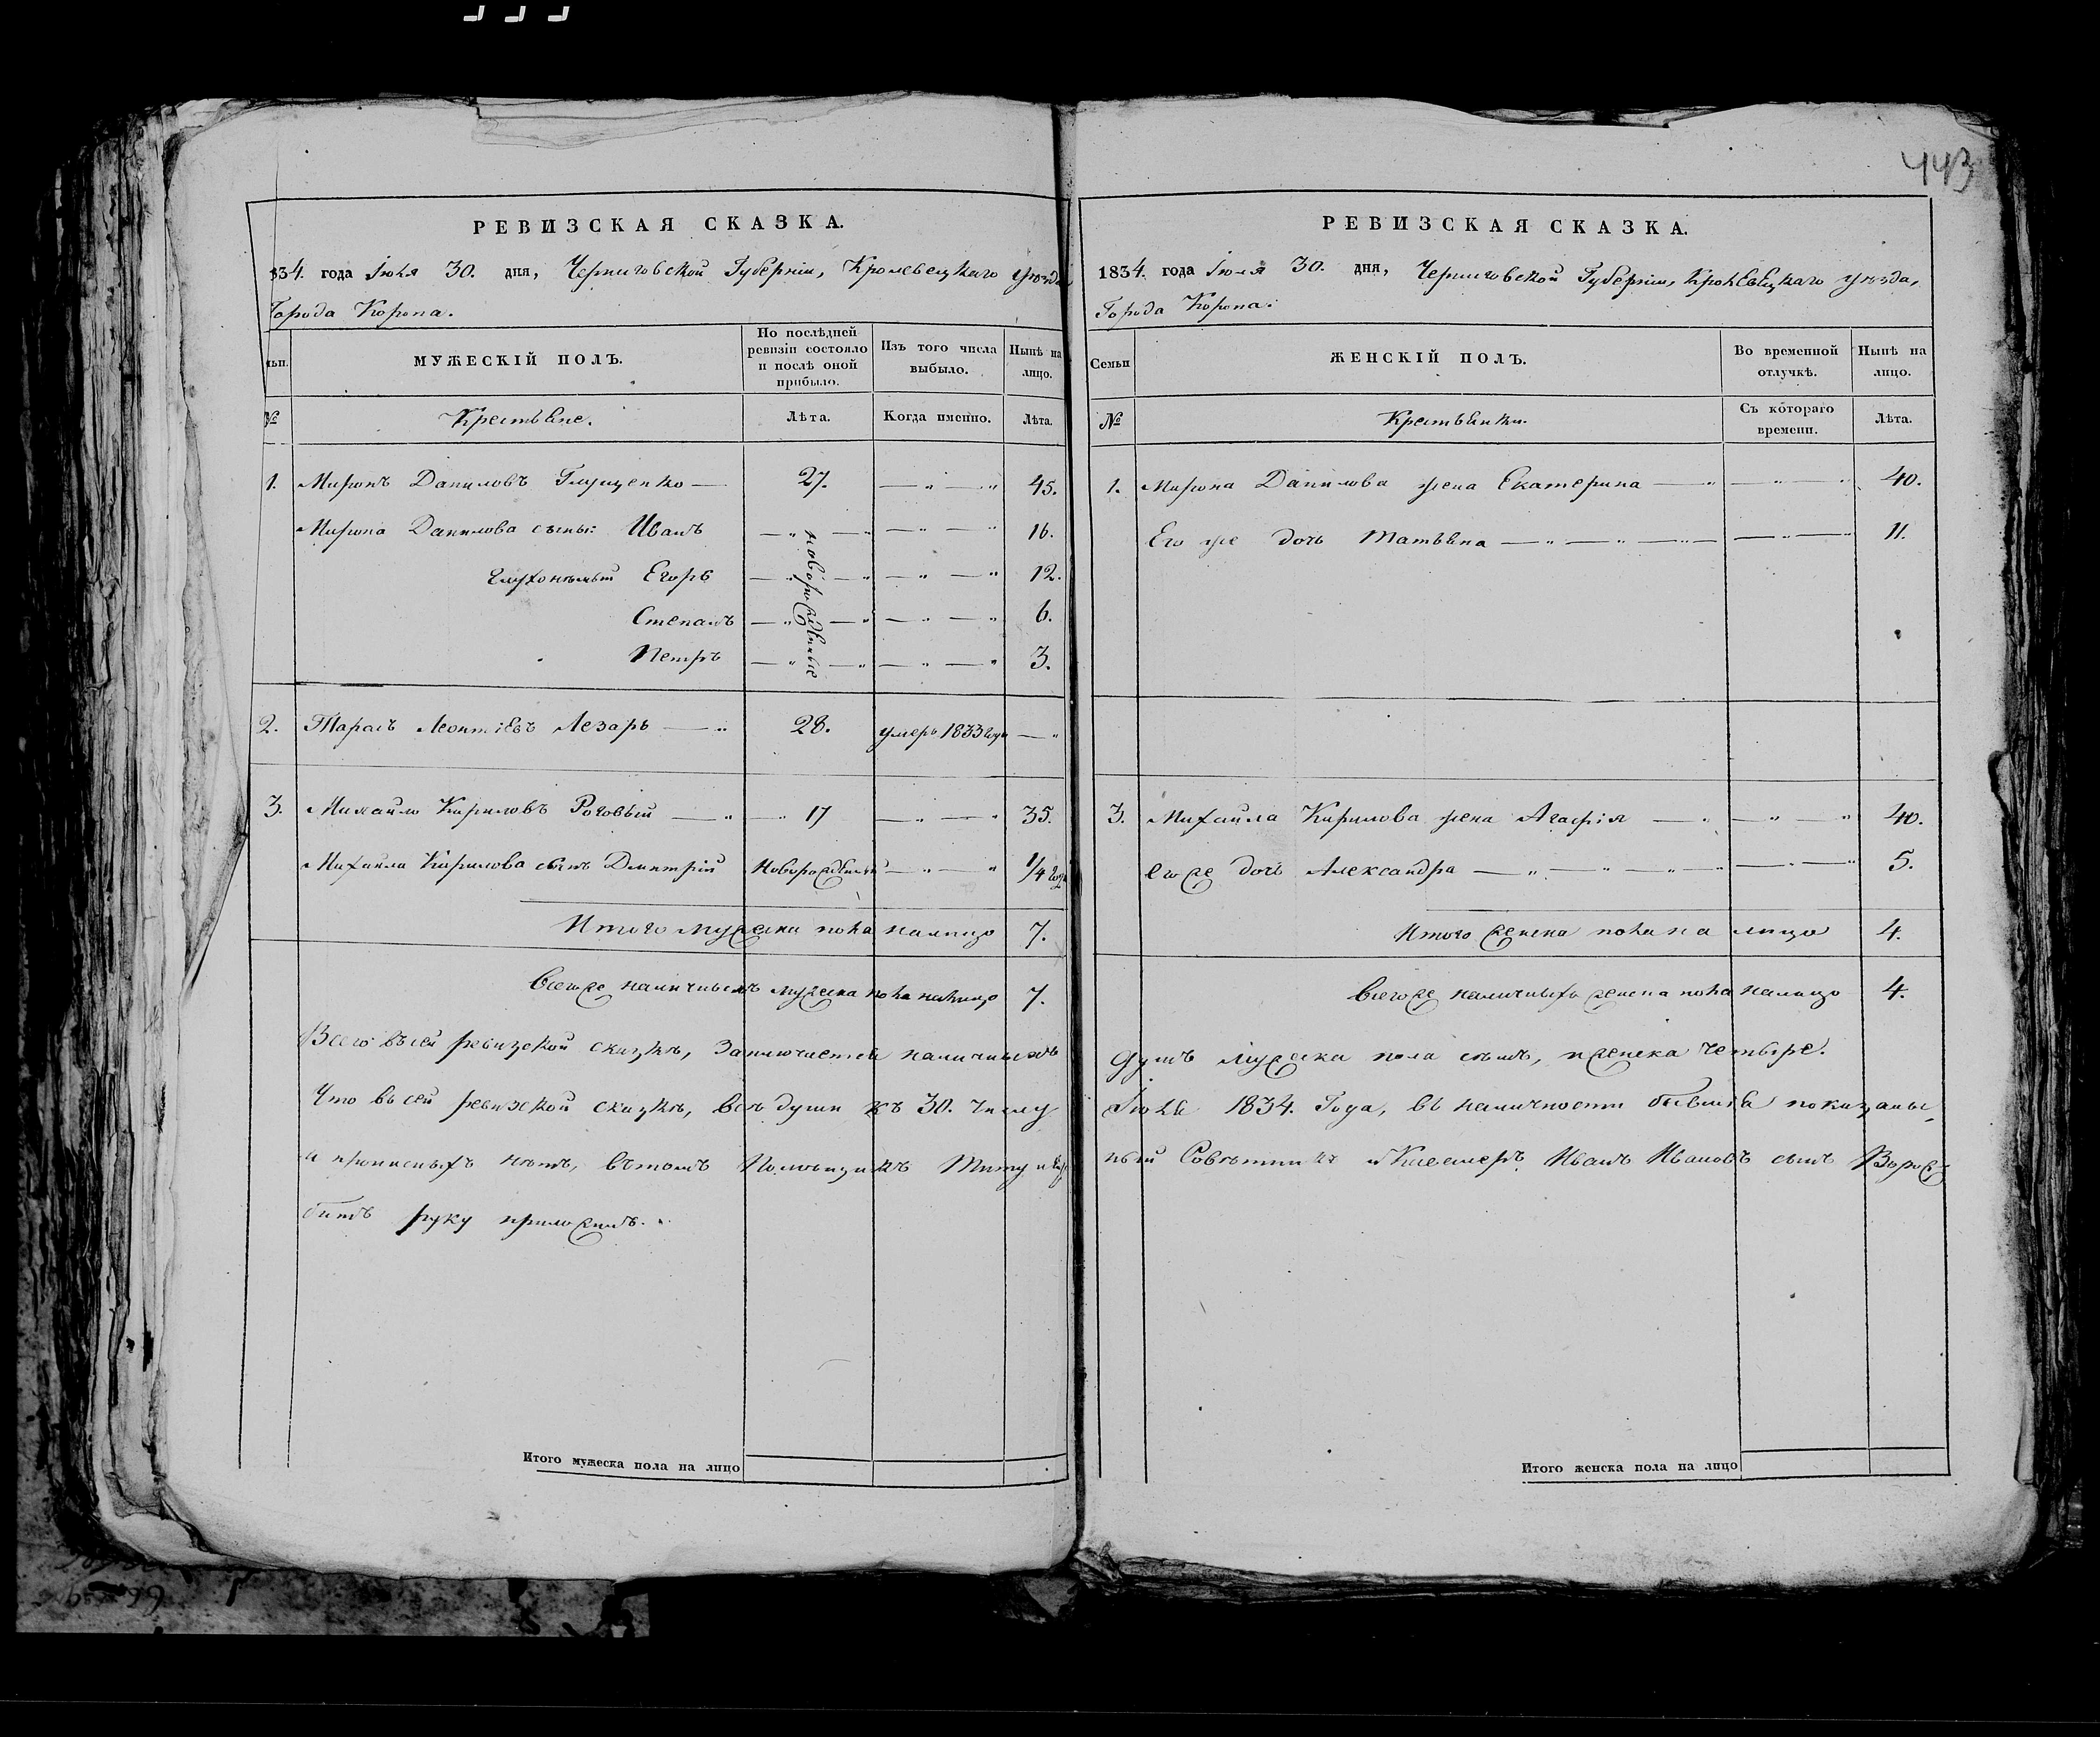 443
РЕВИЗСКАЯ СКАЗКА.
1834. года Іюля 30. дня, Черниговской Губерніи, Кролевецкаго уѣзда
Города Коропа.
МУЖЕСКІЙ ПОЛЪ.
По послѣдней ревизіи состояло и послѣ оной прибыло.
Изъ того числа выбыло.
Нынѣ на лицо.
№
Крестьяне.
Лѣта.
Когда именно.
Лѣта.
1. Миронъ Даниловъ Глущенко 27. 45.
Мирона Данилова сыны: Иванъ новорожденные 16.
глухонѣмый Егоръ 12.
Степанъ 6.
Петръ 3.
2. Тарасъ Леонтіевъ Лезарь 28. умеръ 1833 года
3. Михайло Кириловъ Роговый 17 35.
Михайла Кирилова сынъ Дмитрій Новорожденный 1/4 года
Итого мужеска пола налицо 7.
Всегоже наличныхъ мужеска пола налицо 7.
Всего въ сей ревизской сказкѣ, заключается наличныхъ
Что въ сей ревизской сказкѣ, всѣ души къ 30. числу
и прописныхъ нѣтъ, въ томъ Помѣщикъ Титуляр
битъ руку приложилъ.
Итого мужеска пола на лицо
РЕВИЗСКАЯ СКАЗКА.
1834. года Іюля 30. дня, Черниговской Губерніи, Кролевецкаго уѣзда,
Города Коропа.
Семьи
ЖЕНСКІЙ ПОЛЪ.
Во временной отлучкѣ.
Нынѣ на лицо.
№
Крестьянки.
Съ котораго времени.
Лѣта.
1. Мирона Данилова жена Екатерина 40.
Его же дочь Татьяна 11.
3. Михайла Кирилова жена Агафія 40.
его же дочь Александра 5.
Итого женска пола на лицо 4.
Всегоже наличныхъ женска пола налицо 4.
душъ мужеска пола семь, женска четыре.
Іюля 1834. Года, въ наличности бывшія показаны,
ный Совѣтникъ и Кавалеръ Иванъ Ивановъ сынъ Ворож
Итого женска пола на лицо